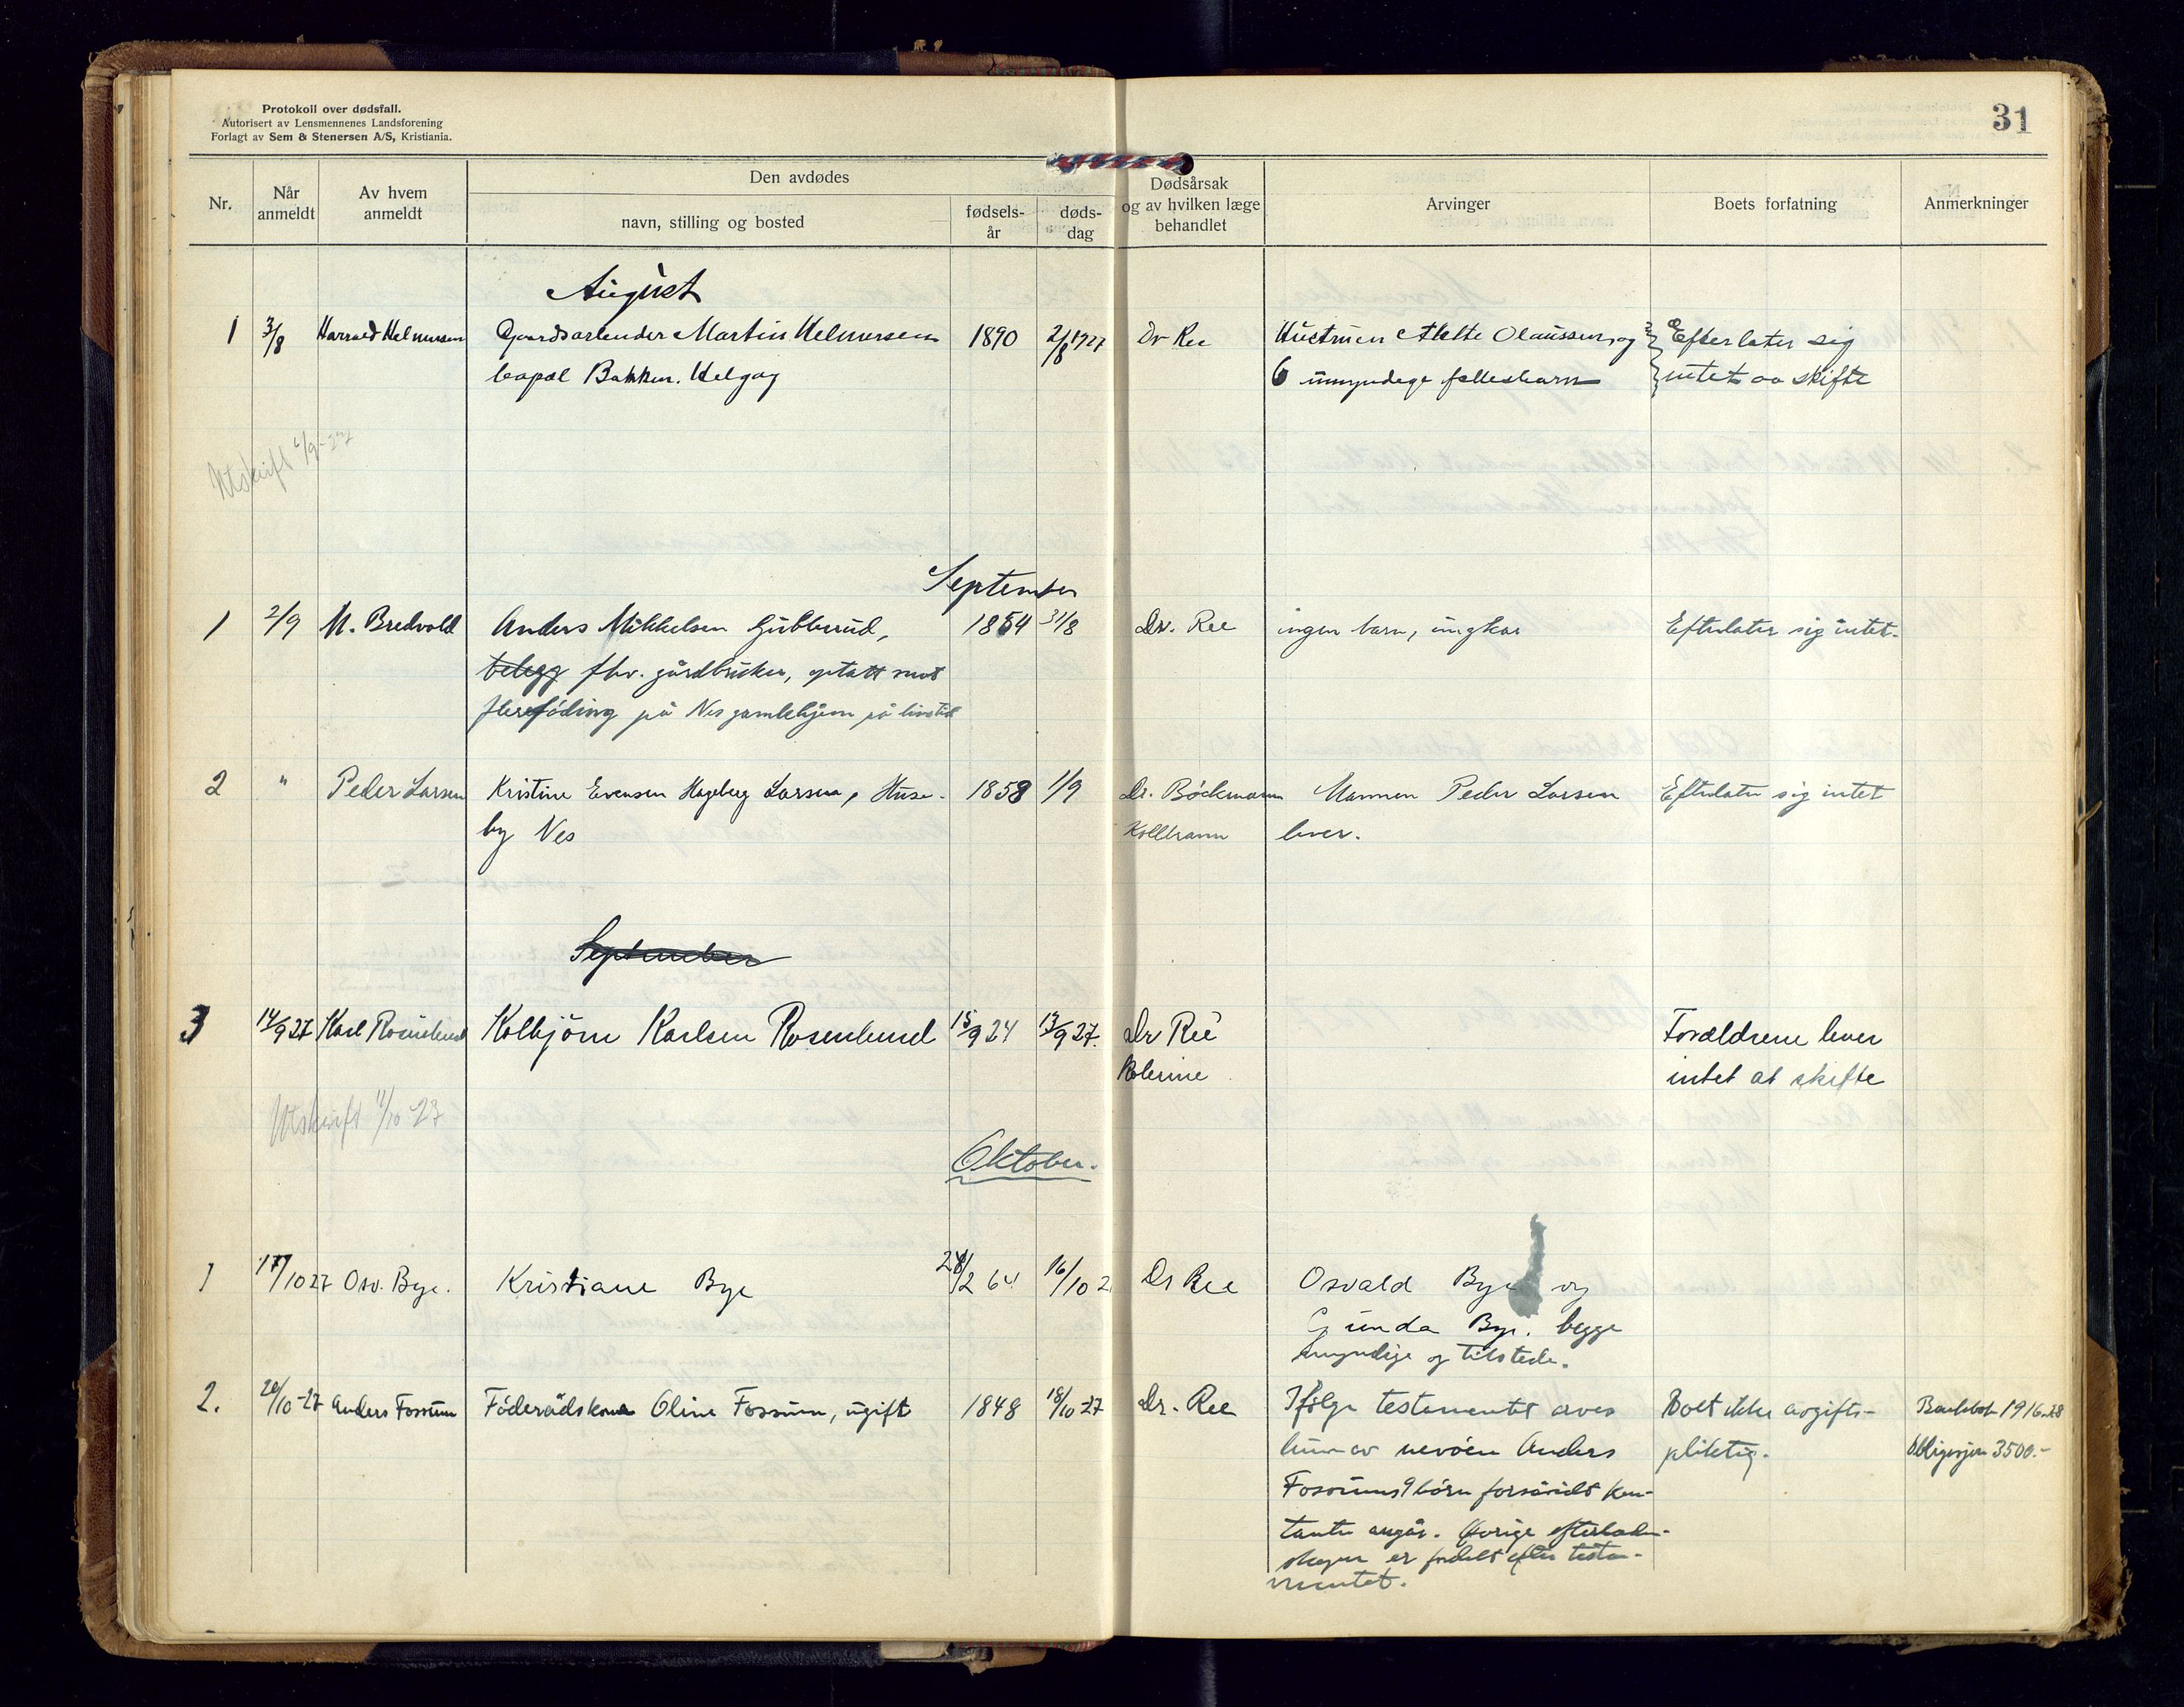 Protokoll over dødsfall.
Autorisert av Lensmennenes Landsforening
Forlagt av Sem & Stenersen A/S, Kristiania.
31
Nr.
Når anmeldt
Av hvem anmeldt
Den avdødes
navn, stilling og bosted
fødsels-år
døds-dag
Dødsårsak og av hvilken læge behandlet
Arvinger
Boets forfatning
Anmerkninger
August
1 3/8 Harrald Helmersen Gaardsarbeider Martin Helmersen 1890 2/8 1927 Dr Ree Hustruen Olaussen og Efterlater sig
Bakken. Helgøy 6 umyndige fællesbarn intet aa skifte
Utskrift 6/9-27
September
1 2/9 M. Bredvold Anders Mikkelsen Gubberud, 1854 31/8 Dr. Ree ingen barn, ungkar Efterlater sig intet.
belegg fhv. gårdbruker, optatt mot
på Nes gamlehjem på livstid
2 " Peder Larsen Kristine Evensen Hageberg Larsen, Huse- 1858 1/9 Dr. Böckmann Mannen Peder Larsen Efterlater sig intet
by Nes Kollbrann lever.
September
3 14/9 27 Karl Rosenlund Kolbjörn Karlsen Rosenlund 15/9 24 13/9 27. Dr Ree Forældrene lever
Kolerine intet at skifte
Utskrift 11/10 27
Oktober.
1 17/10 27 Osv. Bye. Kristiane Bye 28/2 64 16/10 2 Dr Ree Osvald Bye og
Gunda Bye. begge
myndige og tilstede.
2. 20/10-27 Anders Fossum Föderådskone Oline Fossum, ugift 1848 18/10-27 Dr. Ree Ifölge testamentet arves Boet ikke avgifts- Bankbok 1916.28
hun av nevöen Anders pliktig. Obligasjon 3500.-
Fossums 9 börn forsåvidt kon-
tanter angår. Övrige efterladen-
skaper er fordelt efter testa-
mentet.